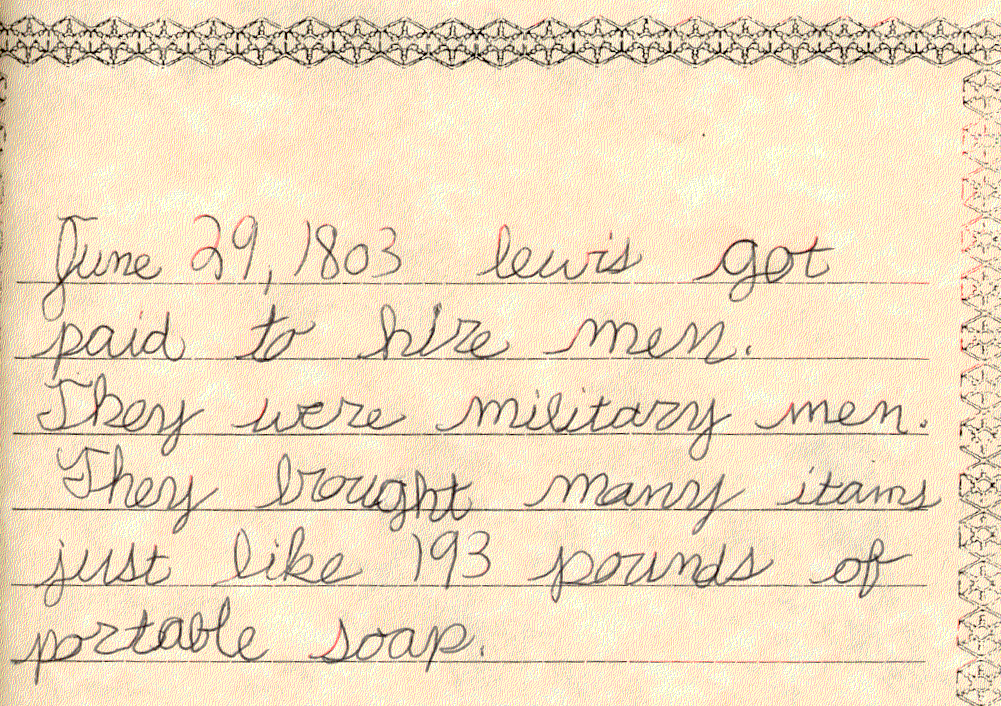 June 29, 1803 lewis got
paid to hire men.
They were military men.
They brought many itams
just like 193 pounds of
portable soap.